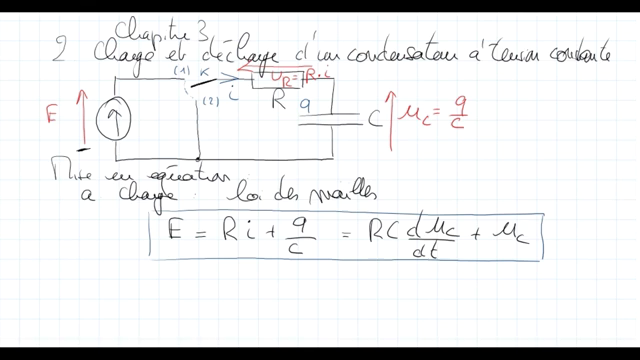 Chapitre 3
2 Charge et décharge d'un condensateur à tension constante
(1) K U_R = R·i
(2) i R q
E C u_C = q/C
Mise en équation
a charge : loi des mailles
E = R i + q/C = RC du_C/dt + u_C